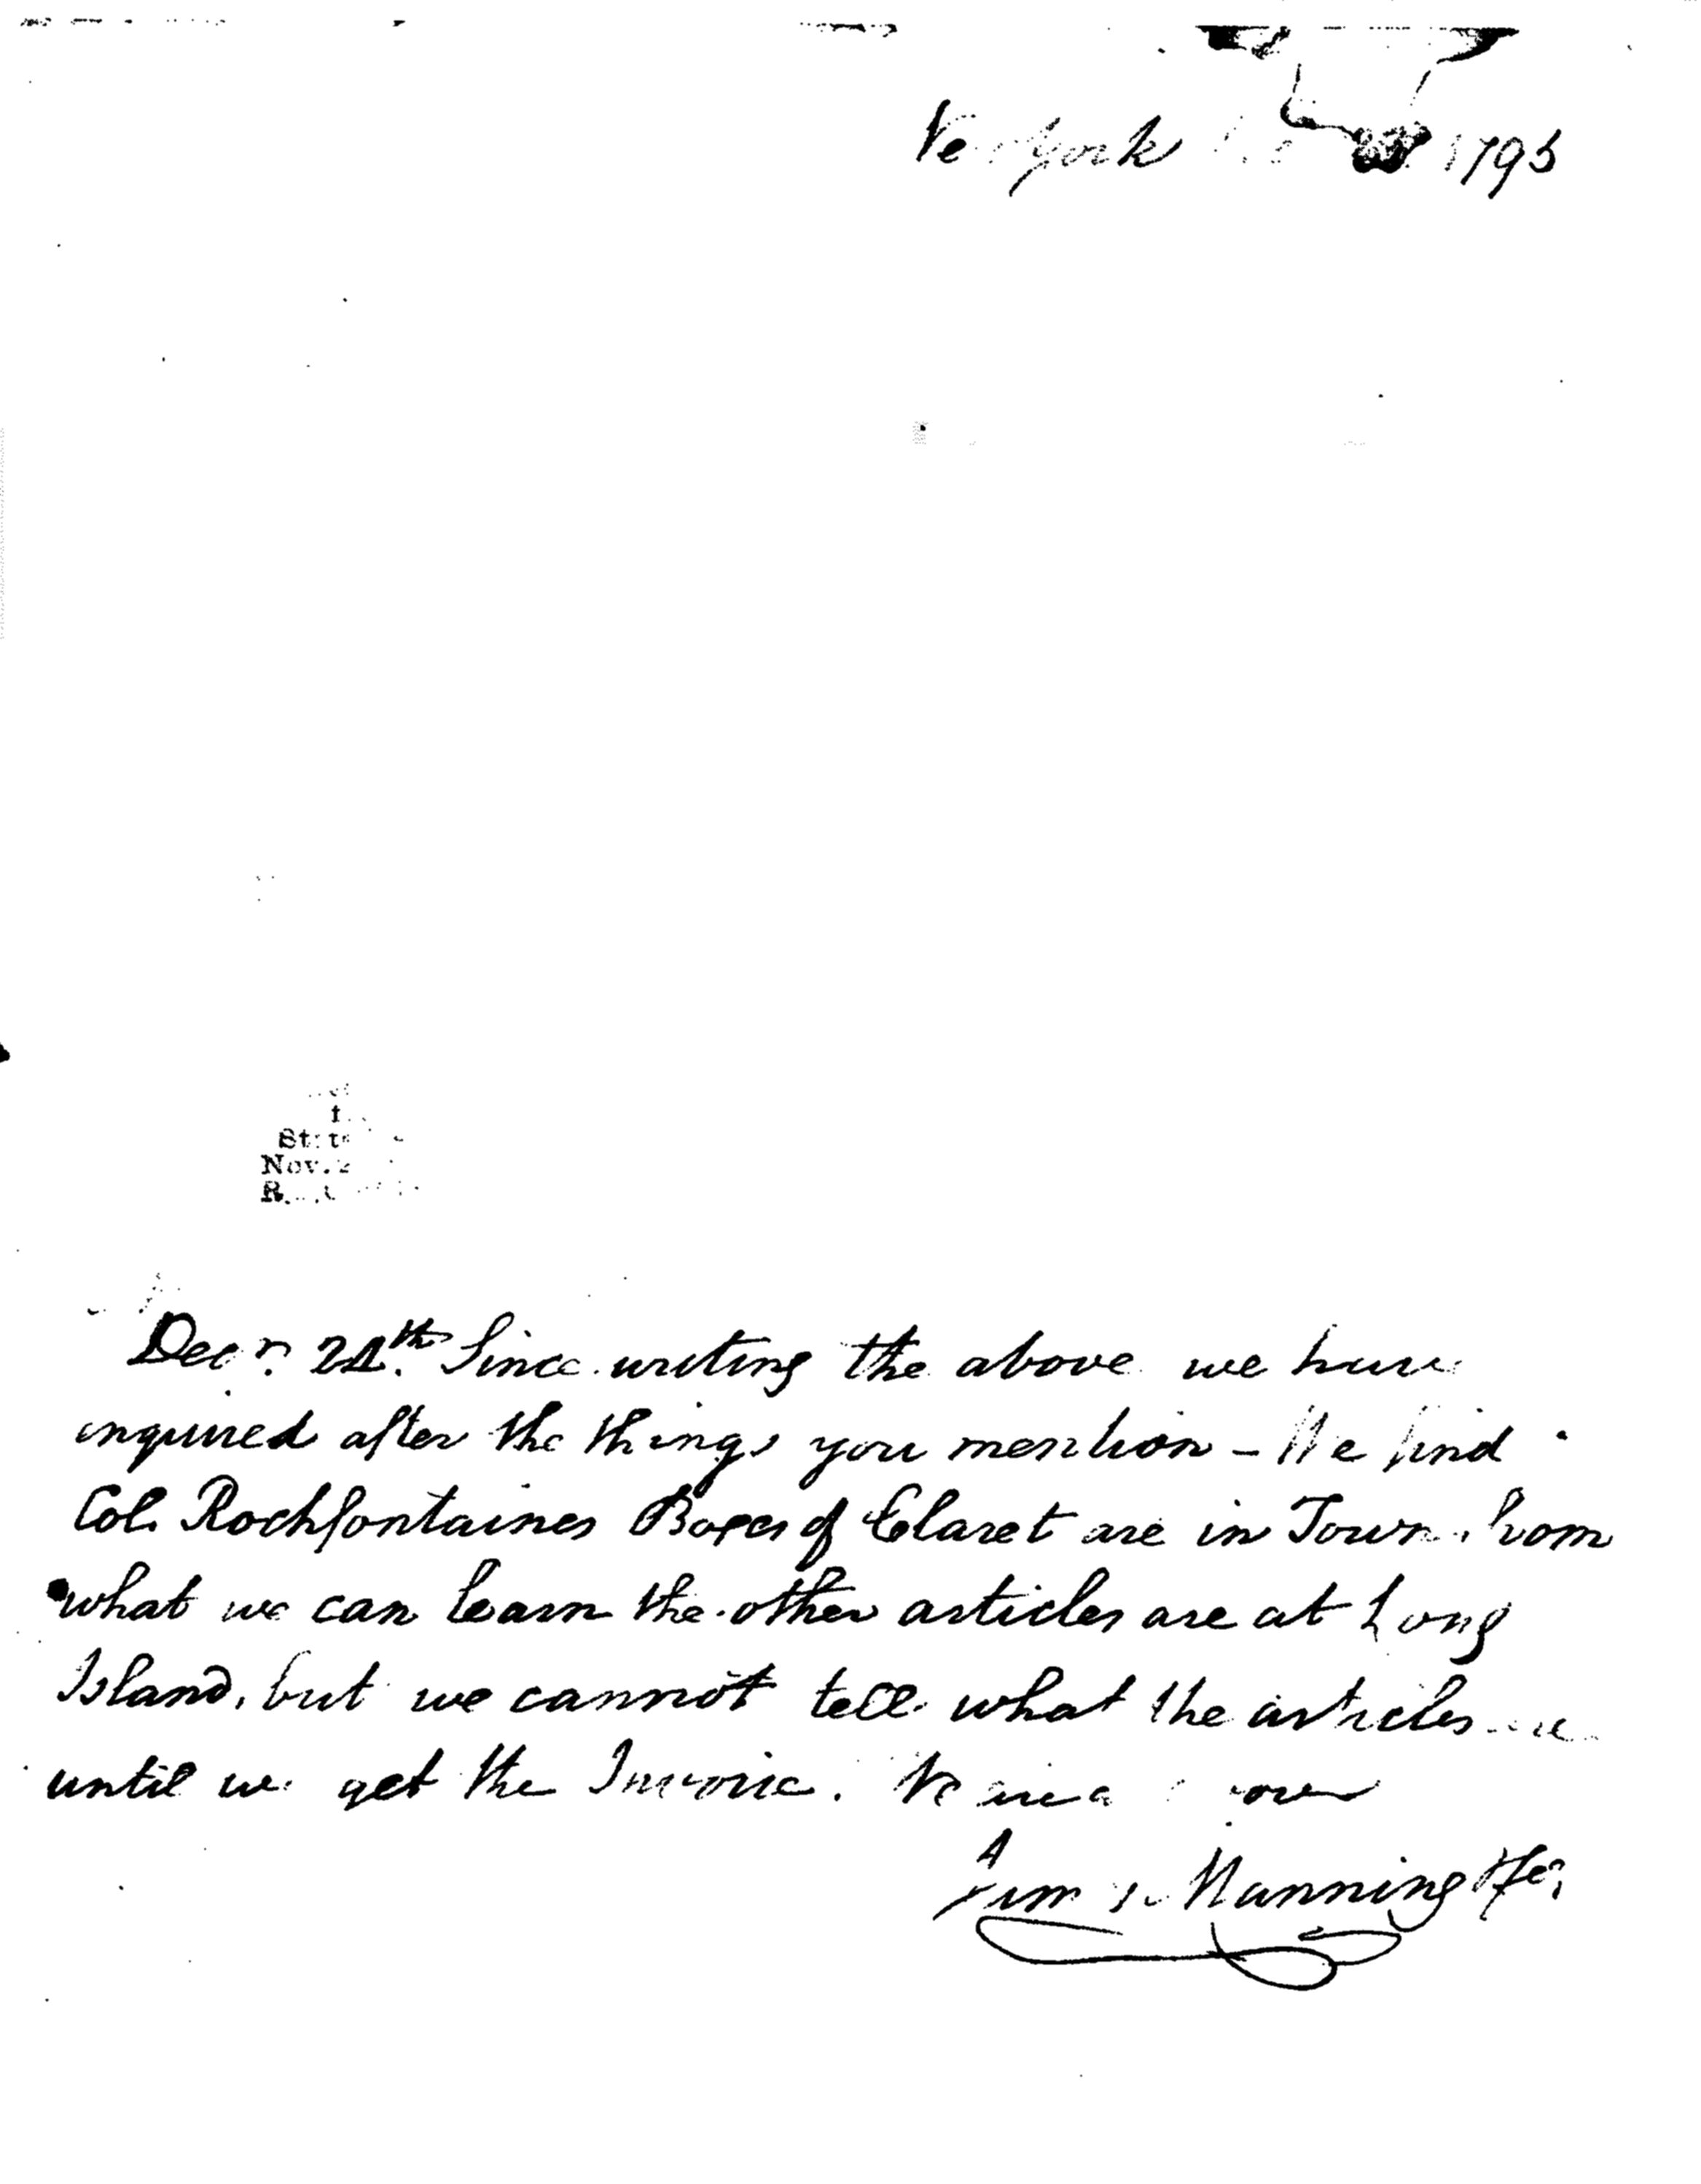 New York 1795
State
Nov. 2
Decr. 24th. Since writing the above we have
inquired after the things you mention – We find
Col. Rochfontaines Boxes of Claret are in Town. from
what we can learn the other articles are at Long
Island, but we cannot tell what the articles are
until we get the Invoice. We are as above
Manning